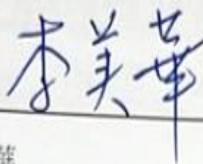 李美華